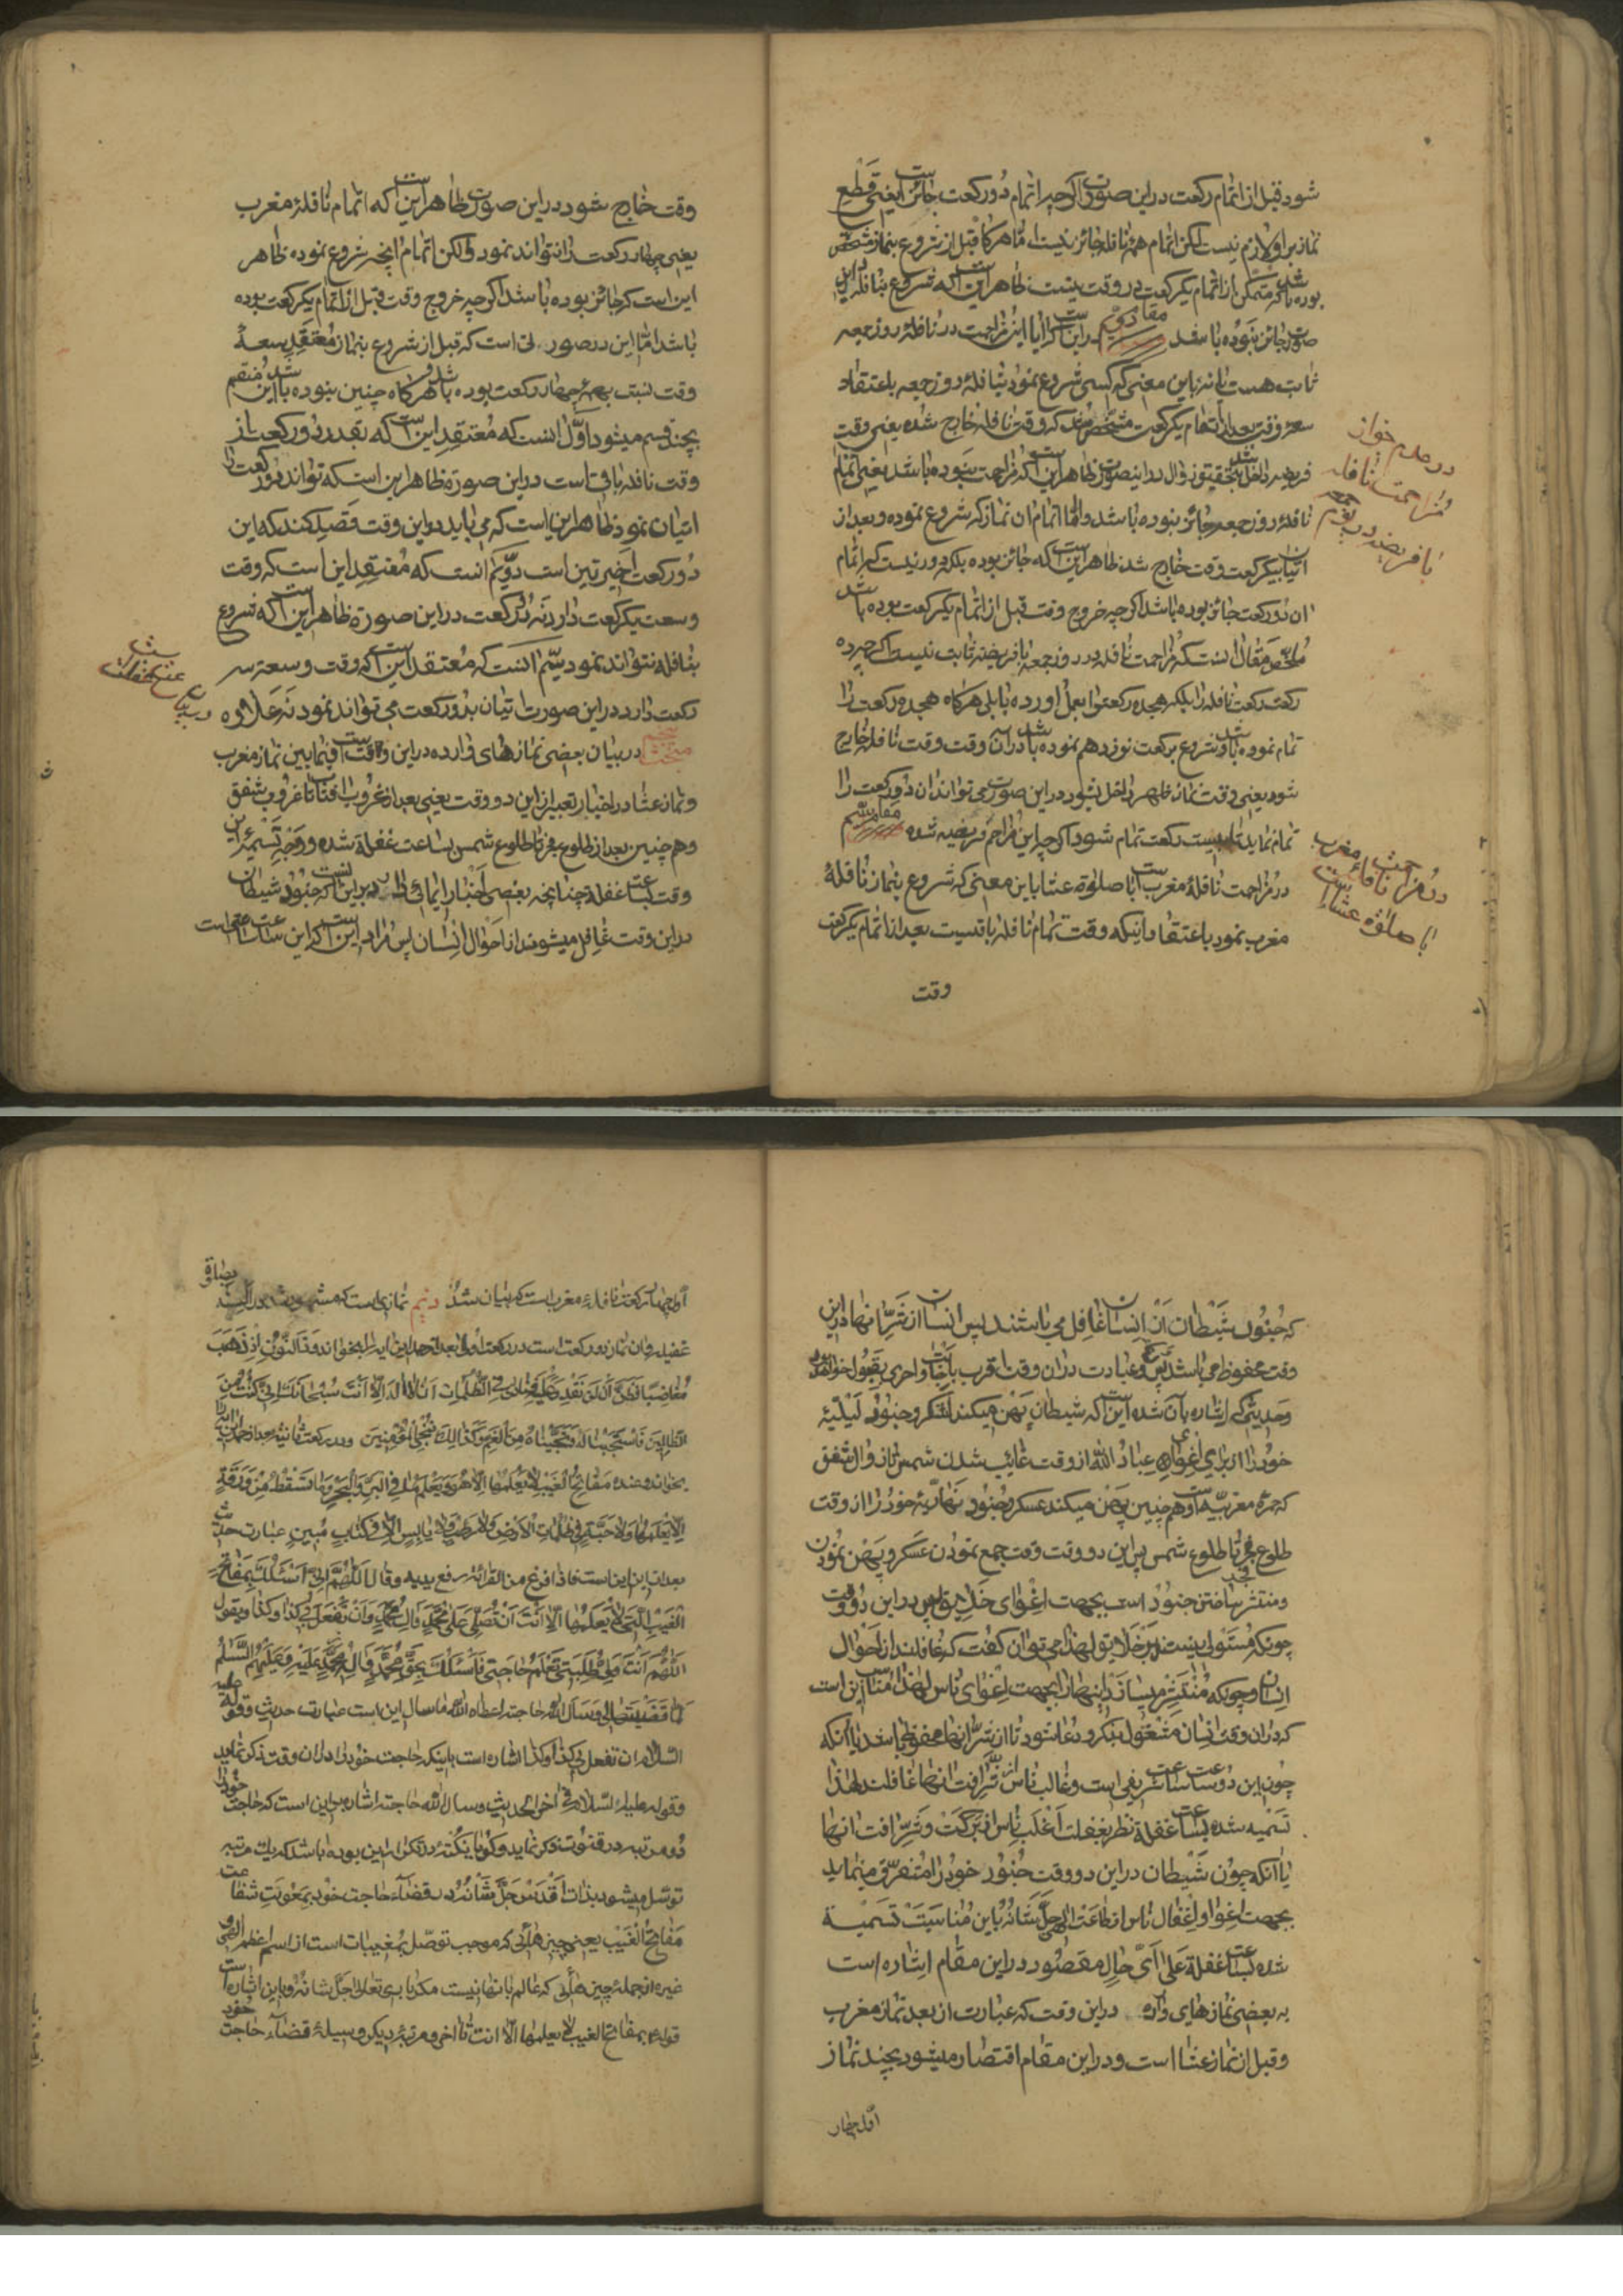 شود قبل از اتمام رکعت در این صورت اگر چه اتمام دو رکعت جائز است یعنی قطع
نماز بر او لازم نیست لکن اتمام همه نافله جائز نیست اما هرگاه قبل از شروع بنماز مشخص
بوده باشد که متمکن از اتمام یکرکعت در وقت نیست ظاهر این است که شروع بنافله در این
صورت جائز نبوده باشد مقام دویم در این که ایا این مزاحمت در نافلهٔ روز جمعه
ثابت هست یا نه باین معنی که کسی شروع نمود بنافلهٔ روز جمعه باعتقاد
سعهٔ وقت بعد از اتمام یکرکعت مشخص شد که وقت نافله خارج شده یعنی وقت
فریضه داخل شد بتحقیق زوال در اینصورت ظاهر این است که مزاحمت نبوده باشد یعنی اتمام
نافلهٔ روز جمعه جائز نبوده باشد و اما اتمام ان نماز که شروع نموده و بعد از
اتیان بیکرکعت وقت خارج شد ظاهر این است که جائز بوده بلکه دور نیست که اتمام
ان دو رکعت جائز بوده باشد اگر چه خروج وقت قبل از اتمام یکرکعت بوده باشد
ملخص مقال انست که مزاحمت نافله در روز جمعه با فریضه ثابت نیست اگر چه ده
رکعت نافله را بلکه هجده رکعت را بعمل اورده باشد بلی هرگاه هجده رکعت را
تمام نموده باشد و شروع برکعت نوزدهم نموده باشد در ان وقت وقت نافله خارج
شود یعنی وقت نماز ظهر داخل بشود در این صورت می تواند ان دو رکعت را
تمام نماید تا بیست رکعت تمام شود اگر چه این مزاحم فریضه شده مقام سیم
در مزاحمت نافلهٔ مغرب است با صلوة عشا باین معنی که شروع بنماز نافلهٔ
مغرب نمود باعتقاد اینکه وقت تمام نافله باقیست بعد از اتمام یکرکعت
وقت
در عدم جواز
مزاحمت نافله
با فریضه در یوم جمعه
در مزاحمت نافله مغرب
با صلوة عشا است
وقت خارج شود در این صورت ظاهر این است که اتمام نافلهٔ مغرب
یعنی چهار رکعت را نتواند نمود ولکن اتمام انچه شروع نموده ظاهر
این است که جائز بوده باشد اگر چه خروج وقت قبل از اتمام یکرکعت بوده
باشد اما این در صورتی است که قبل از شروع بنماز معتقد سعهٔ
وقت نسبت بهمهٔ چهار رکعت بوده باشد و هرگاه چنین نبوده باشد این منقسم
بچند قسم میشود اول انست که معتقد این است که بقدر دو رکعت از
وقت نافله باقی است در این صورة ظاهر این است که تواند دو رکعت را
اتیان نمود ظاهر این است که می باید در این وقت قصد کند که این
دو رکعت اخیرتین است دویم انست که معتقد این است که وقت
وسعت یکرکعت دارد نه دو رکعت در این صورة ظاهر این است که شروع
بنافله نتواند نمود سیم انست که معتقد این است که وقت وسعهٔ سه
رکعت دارد در این صورت اتیان بدو رکعت می تواند نمود نه علاوه
مبحث پنجم در بیان بعضی نمازهای وارده در این وقت است فیما بین نماز مغرب
و نماز عشا در اخبار تعبیر از این دو وقت یعنی بعد از غروب افتاب تا غروب شفق
و هم چنین بعد از طلوع فجر تا طلوع شمس بساعت غفلة شده و وجه تسمیهٔ این
وقت بساعت غفلة چنانچه بعضی اخبار ایمائی دارد بر این انست که جنود شیطان
در این وقت غافل میشوند از احوال انسان پس مراد این است که این ساعت ساعتی است
در بیان ساعت غفلت است
که جنود شیطان از انسان غافل می باشند پس انسان از شر انها در این
وقت محفوظ می باشد پس تضرع و عبادت در ان وقت اقرب باجابت و احری بقبول خواهد بود
و حدیثی که اشاره بآن شده این است که شیطان پهن میکند لشکر و جنود لیلیهٔ
خود را از برای اغوای عباد الله از وقت غائب شدن شمس تا زوال شفق
که حمرهٔ مغربیه است و هم چنین پهن میکند عسکر و جنود نهاریهٔ خود را از وقت
طلوع فجر تا طلوع شمس پس این دو وقت وقت جمع نمودن عسکر و پهن نمودن
و منتشر ساختن جنود است بجهت اغوای خلایق پس در این دو وقت
چونکه مستولی نیستند بر خلایق لهذا می توان گفت که غافلند از احوال
انسان و چونکه منتشر میسازد اینها را بجهت اغوای ناس لهذا مناسب این است
که در ان وقت انسان مشغول بذکر و دعا شود تا از شر انها محفوظ باشد یا آنکه
چون این دو ساعت ساعت شریفی است و غالب ناس از شرافت انها غافلند لهذا
تسمیه شده بساعت غفلة نظر بغفلت اغلب ناس از برکت و شرافت انها
یا آنکه چون شیطان در این دو وقت جنود خود را متفرق مینماید
بجهت اغوا و اغفال ناس از طاعت الهی جل شانه باین مناسبت تسمیة
شده بساعت غفلة علی ای حال مقصود در این مقام اشاره است
به بعضی نمازهای وارده در این وقت که عبارت از بعد نماز مغرب
و قبل از نماز عشا است و در این مقام اقتصار میشود بچند نماز
اول چهار
اول چهار رکعت نافلهٔ مغرب است که بیان شد دویم نمازی است که مشهور شده در السنه بصلوة
غفیله و ان نماز دو رکعت است در رکعت اولی بعد از حمد این ایه را بخواند وذا النون اذ ذهب
مغاضبا فظن ان لن نقدر علیه فنادی فی الظلمات ان لا اله الا انت سبحانک انی کنت من
الظالمین فاستجبنا له و نجیناه من الغم و کذالک ننجی المؤمنین و در رکعت ثانیه بعد از حمد این ایه را
بخواند و عنده مفاتح الغیب لا یعلمها الا هو و یعلم ما فی البر و البحر و ما تسقط من ورقة
الا یعلمها و لا حبة فی ظلمات الارض و لا رطب و لا یابس الا فی کتاب مبین عبارت حدیث
بعد از این این است فاذا فرغ من القرائة رفع یدیه و قال اللهم انی اسئلک بمفاتح
الغیب التی لا یعلمها الا انت ان تصلی علی محمد و ال محمد و ان تفعل بی کذا و کذا و یقول
اللهم انت ولی نعمتی و القادر علی طلبتی تعلم حاجتی فاسئلک بحق محمد و اله محمد علیه و علیهم السلام
لما قضیتها لی و سال الله حاجته اعطاه الله ما سال این است عبارت حدیث و قوله علیه
السلام ان تفعل بی کذا و کذا اشاره است باینکه حاجت خود را در ان وقت ذکر نماید
و قوله علیه السلام فی اخر الحدیث و سال الله حاجته اشاره باین است که حاجت خود را
دو مرتبه در قنوت ذکر نماید و گویا نکتهٔ در تکرار این بوده باشد که یک مرتبه
توسل میشود بذات اقدس جل شانه در قضاء حاجت خود بمعونت شفاعت
مفاتح الغیب یعنی چیز هائی که موجب توصل بمغیبات است از اسم اعظم الهی و
غیره از جمله چیز هائی که عالم بانها نیست مگر باری تعالی جل شانه و باین اشاره است
قوله بمفاتح الغیب التی لا یعلمها الا انت تا اخر و مرتبهٔ دیگر وسیلهٔ قضاء حاجت خود